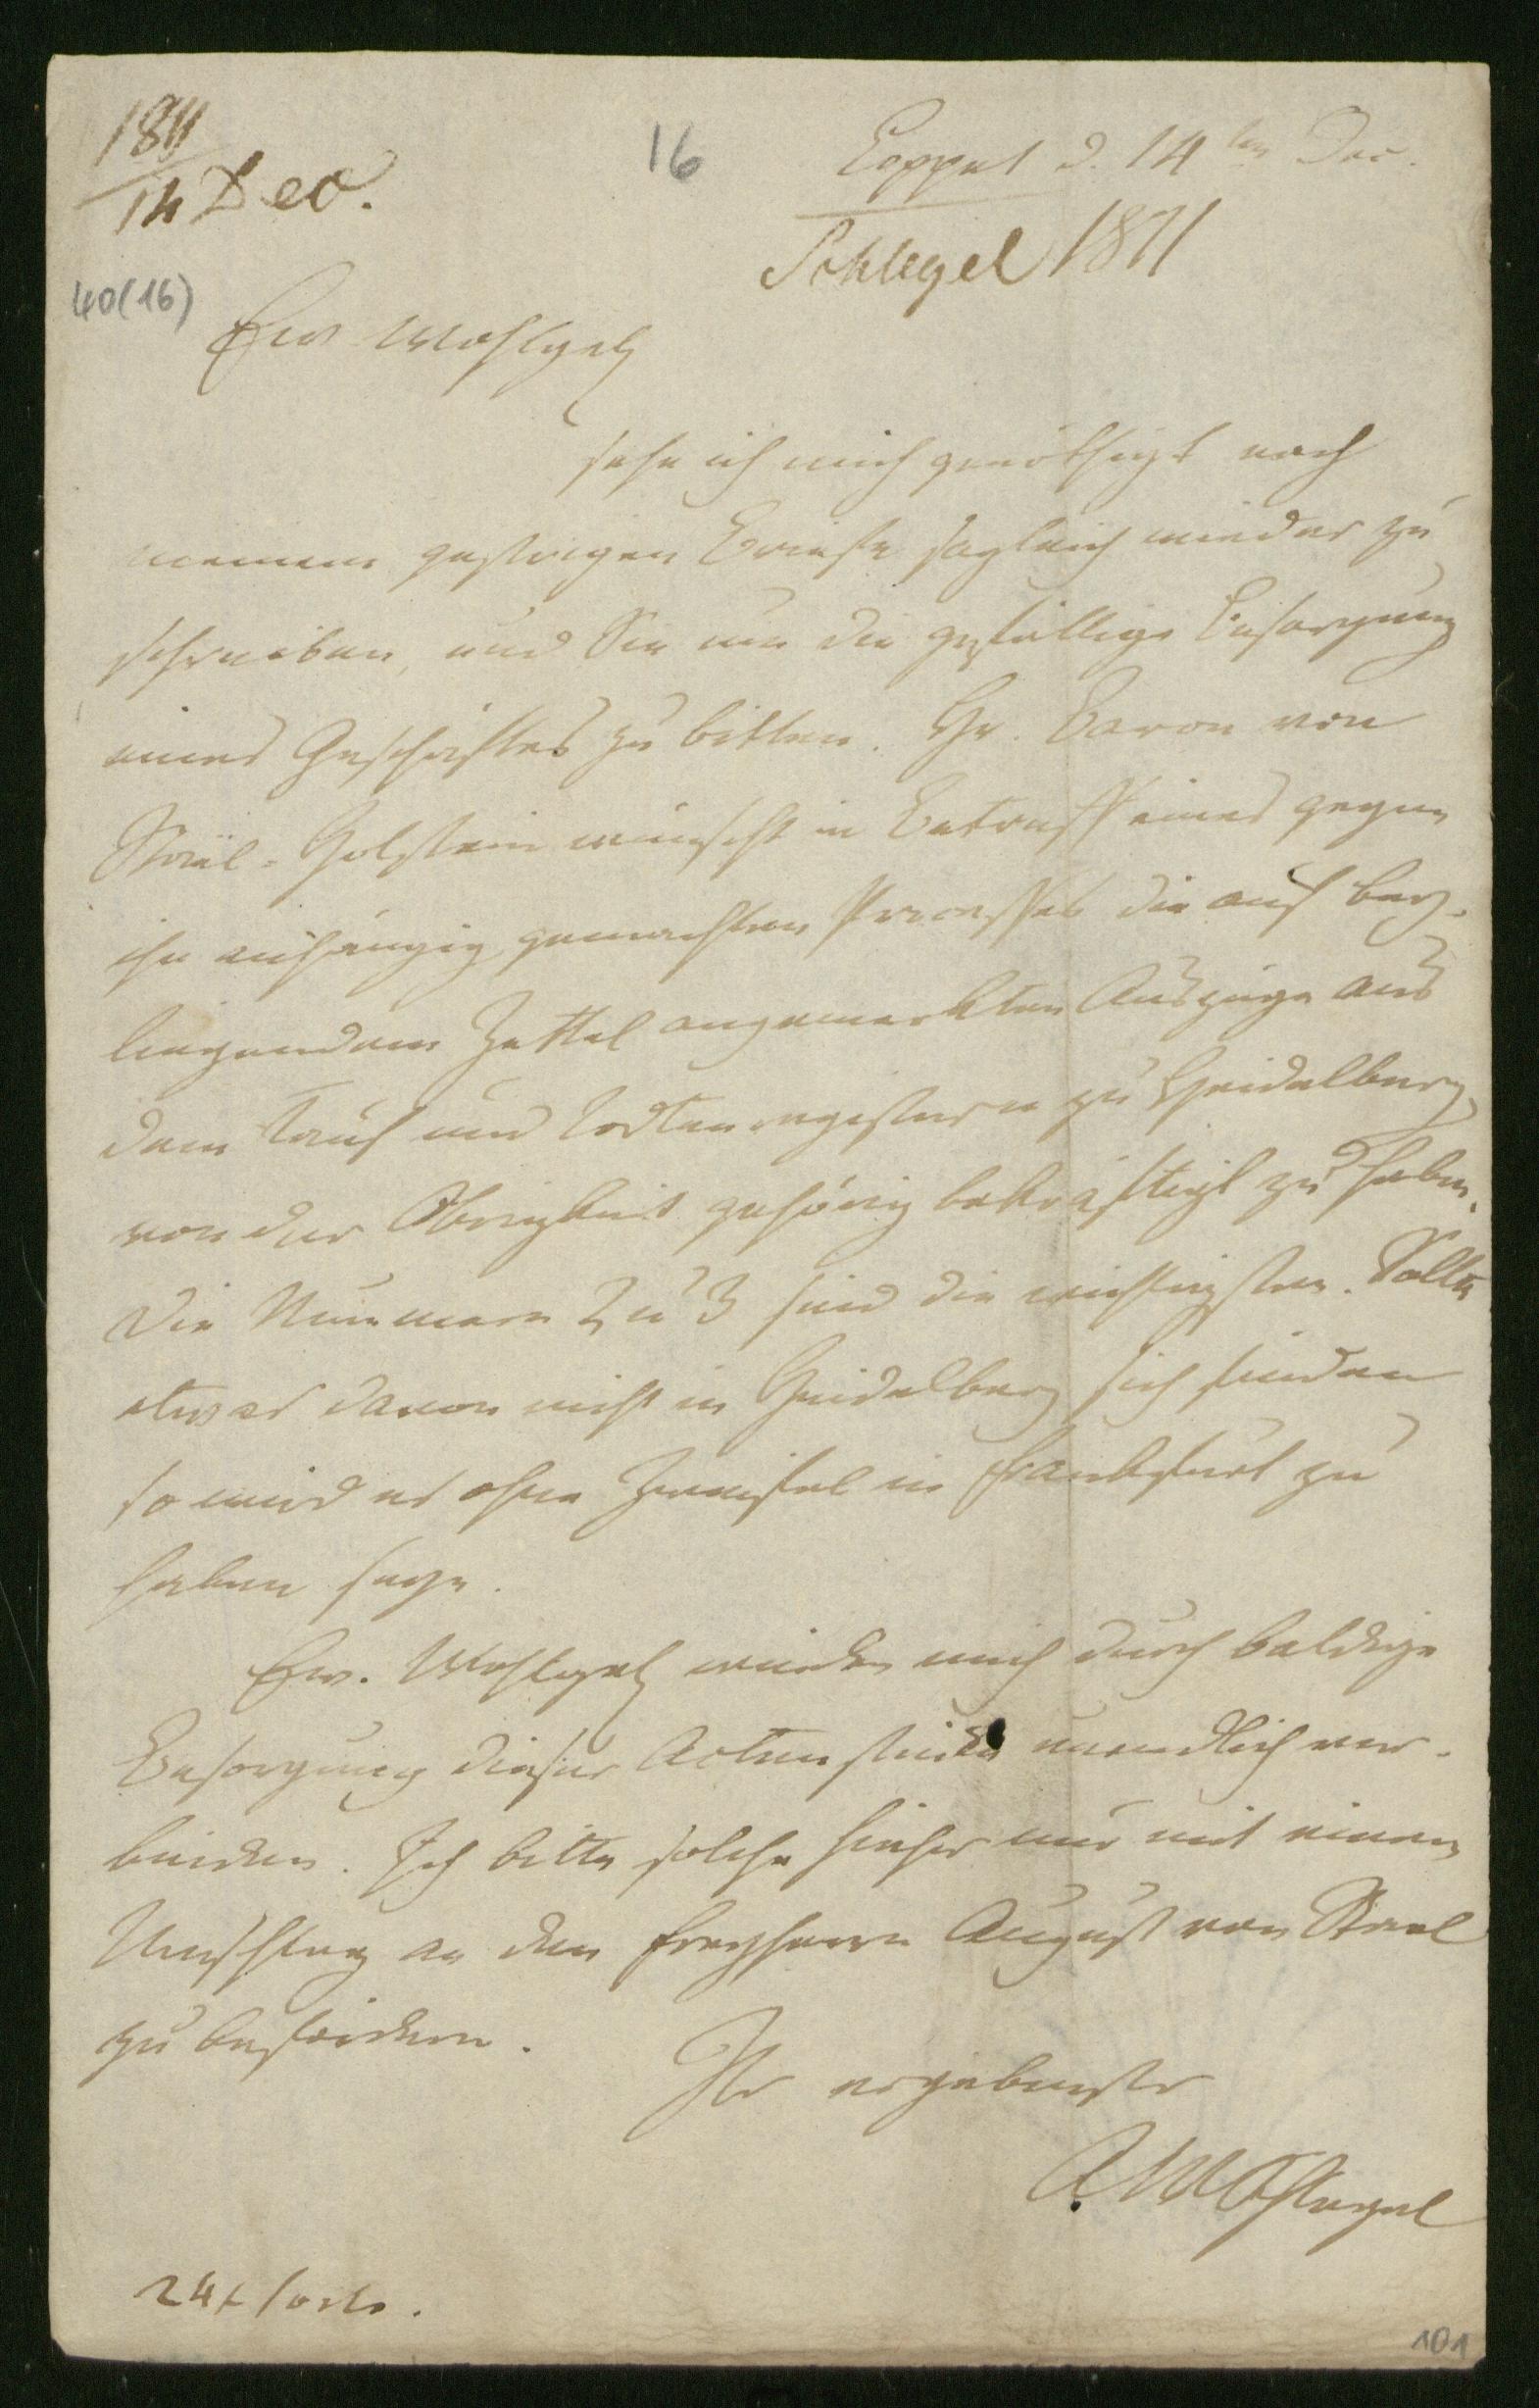 1811
14 Dec.
16
Coppet d. 14ten Dec.
Schlegel 1811
40(16)
Ew Wohlgeb
sehe ich mich genöthigt nach
meinem gestrigen Briefe sogleich wieder zu
schreiben, und Sie um die gefällige Besorgung
eines Geschäftes zu bitten. Hr. Baron von
Staël-Holstein wünscht in Betreff eines gegen
ihn anhängig gemachten Processes die auf bey-
liegendem Zettel angemerkten Auszüge aus
dem Tauf und Todtenregistern zu Heidelberg,
von der Obrigkeit gehörig bekräftigt zu haben.
Die Nummern 2 u 3 sind die wichtigsten. Sollte
etwas davon nicht in Heidelberg sich finden
so wird es ohne Zweifel in Frankfurt zu
haben seyn.
Ew. Wohlgeb würden mich durch baldige
Besorgung dieser Actenstücke unendlich ver-
binden. Ich bitte solche hieher nur mit einem
Umschlag an den Freyherrn August von Stael
zu befördern.
Ihr ergebenster
AWSchlegel
24 x Porto.
101